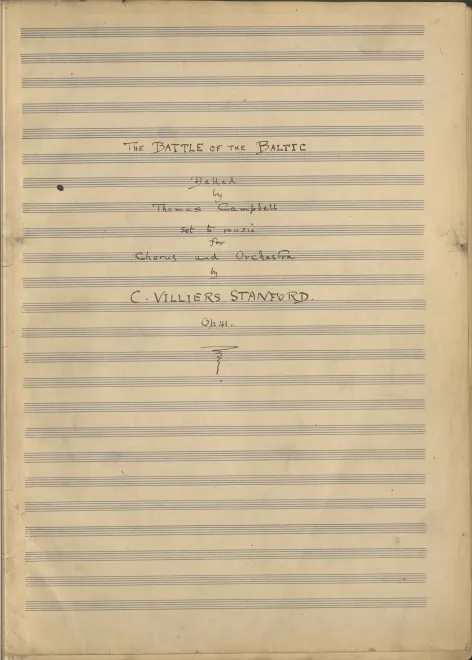 THE BATTLE OF THE BALTIC
Ballad
by
Thomas Campbell
set to music
for
Chorus and Orchestra
by
C. VILLIERS STANFORD.
Op. 41.